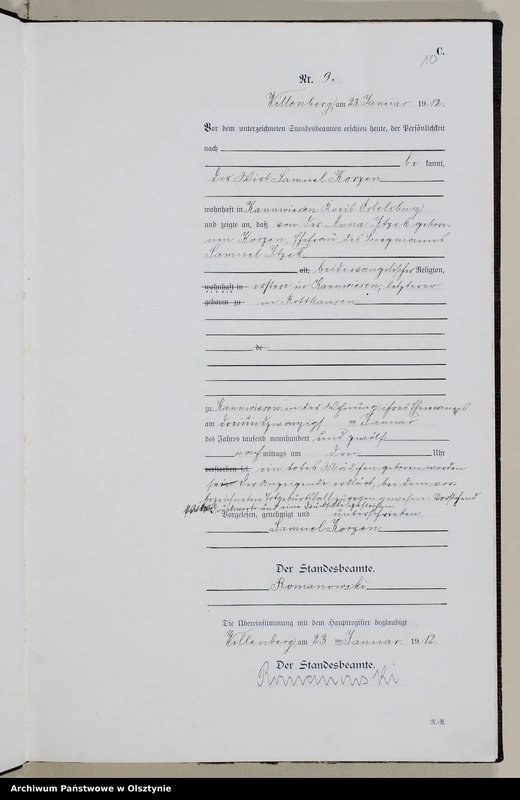 C.
10
Nr. 9.
Willenberg, am 23 Januar 1912.
Vor dem unterzeichneten Standesbeamten erschien heute, der Persönlichkeit
nach
be kannt,
der Wirt Samuel Korzen
wohnhaft in Kannwiesen Kreis Ortelsburg
und zeigte an, daß von der Anna Itzek gebore-
nen Korzen, Ehefrau des Bergmannes
Samuel Itzek
alt, beide evangelischer Religion,
wohnhaft in erstere in Kannwiesen, letzterer
geboren zu in Rotthausen
de
zu Kannwiesen in der Wohnung ihres Ehemannes
am dreiundzwanzigsten Januar
des Jahres tausend neunhundert und zwölf
nach mittags um drei Uhr
verstorben sei ein totes Mädchen geboren worden
sei. Der Anzeigende erklärt, bei dem vor-
bezeichneten zugegen gewesen. Vorstehend
Vorgelesen, genehmigt und unterschrieben
Samuel Korzen
Der Standesbeamte.
Romanowski
Die Übereinstimmung mit dem Hauptregister beglaubigt
Willenberg, am 23 ten Januar 1912.
Der Standesbeamte.
Romanowski
R.-R.
Archiwum Państwowe w Olsztynie